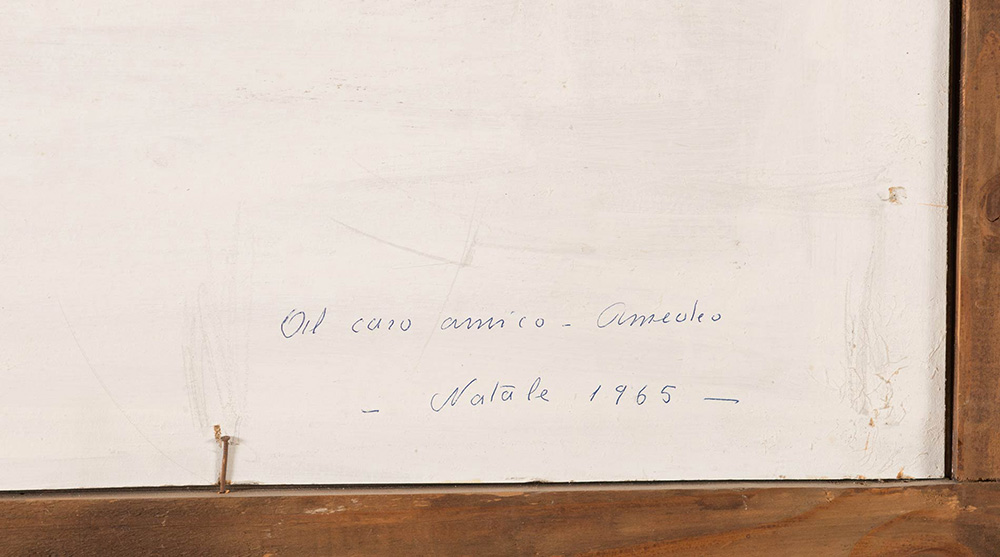 Al caro amico - Amedeo
- Natale 1965 -